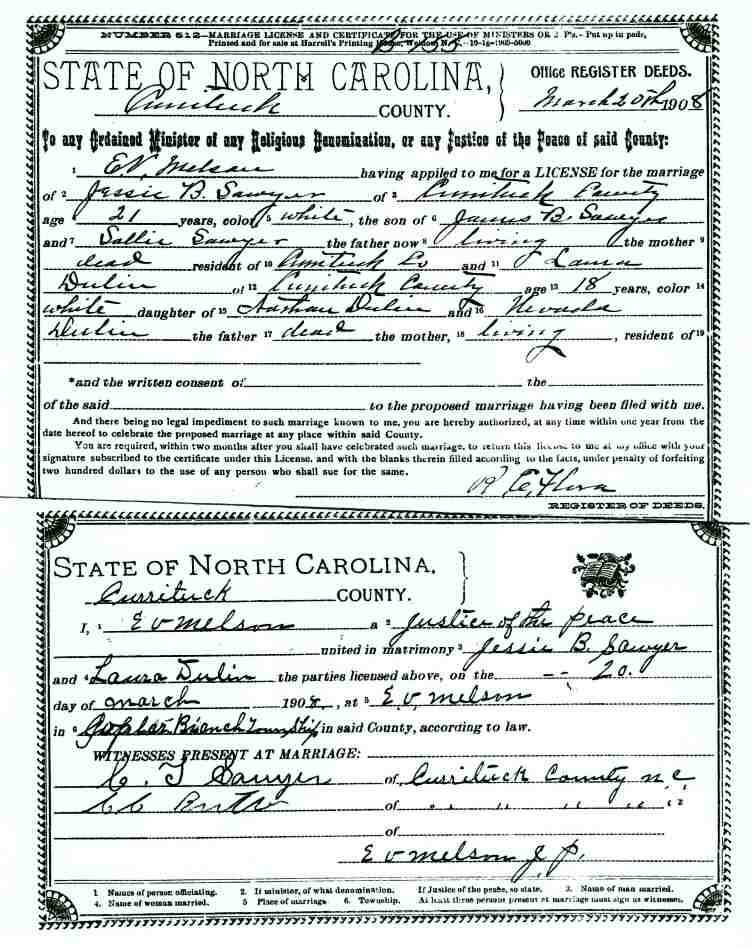 NUMBER 512—MARRIAGE LICENSE AND CERTIFICATE FOR THE USE OF MINISTERS OR J. P's.—Put up in pads,
Printed and for sale at Harrell's Printing House, Weldon N. C.
STATE OF NORTH CAROLINA,
Office REGISTER DEEDS.
Currituck COUNTY.
March 20th 1908
To any Ordained Minister of any Religious Denomination, or any Justice of the Peace of said County:
1 E V Melson having applied to me for a LICENSE for the marriage
of 2 Jessie B. Sawyer of 3 Currituck County
age 21 years, color 5 white, the son of 6 James B. Sawyer
and 7 Sallie Sawyer the father now 8 living the mother 9
dead resident of 10 Currituck Co and 11 Laura
Dulin of 12 Currituck County age 13 18 years, color 14
white daughter of 15 Nathan Dulin and 16 Nevada
Dulin the father 17 dead the mother, 18 living, resident of 19
*and the written consent of the
of the said to the proposed marriage having been filed with me.
And there being no legal impediment to such marriage known to me, you are hereby authorized, at any time within one year from the
date hereof to celebrate the proposed marriage at any place within said County.
You are required, within two months after you shall have celebrated such marriage, to return this license to me at my office with your
signature subscribed to the certificate under this License, and with the blanks therein filled according to the facts, under penalty of forfeiting
two hundred dollars to the use of any person who shall sue for the same.
Flora
REGISTER OF DEEDS.
STATE OF NORTH CAROLINA,
Currituck COUNTY.
I, 1 E V Melson a 2 Justice of the peace
united in matrimony 3 Jessie B. Sawyer
and 4 Laura Dulin the parties licensed above, on the -- 20.
day of march 1908, at 5 E. V. melson
in 6 Branch Township in said County, according to law.
WITNESSES PRESENT AT MARRIAGE:
C. T Sawyer of Currituck County n c
of " " " "
of
E V melson J. P.
1 Names of person officiating. 2. If minister, of what denomination. If Justice of the peace, so state. 3. Name of man married.
4. Name of woman married. 5 Place of marriage 6. Township. At least three persons present at marriage must sign as witnesses.